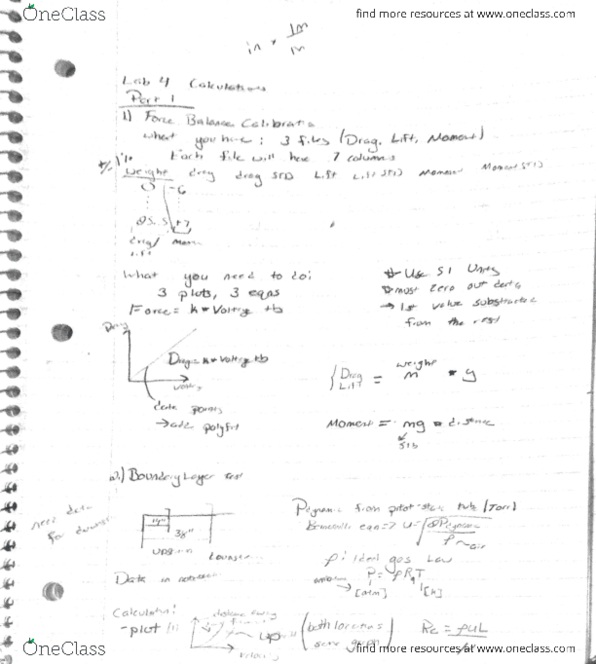 OneClass
find more resources at www.oneclass.com
in * 1m
in
Lab 4 Calculations
Part 1
1) Force Balance Calibratio
what you have: 3 files (Drag, Lift, Moment)
Each file will have 7 columns
weight drag drag STD Lift Lift STD Moment Moment STD
0 -6
drag/
lift
What you need to do:
3 plots, 3 eqns
Force = k * Voltage + b
* Use SI Units
must zero out data
→ 1st value substracted
from the rest
Drag
Drag = k * Voltage + b
voltage
data points
→ add polyfit
{ Drag
Lift =
weight
m * g
Moment = mg * distance
2.) Boundary Layer Test
need data
for
3/8"
upstream
Data in
Pdynamic from pitot-static tube (Torr)
Bernoulli eqn => U = √ 2Pdynamic
ρ air
ρ: ideal gas law
P = ρRT
→ [atm] [K]
Calculation:
- plot
velocity
(both locations
same graph)
Re = ρUL
OneClass
find more resources at www.oneclass.com